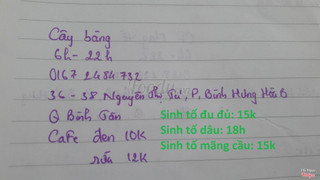 Cây bàng
6h - 22h
0167 2484 732
36 - 38 Nguyễn Thị Tú, P. Bình Hưng Hòa B
Q Bình Tân
Sinh tố đu đủ: 15k
Cafe đen 10K
Sinh tố dâu: 18h
sữa 12K
Sinh tố mãng cầu: 15k